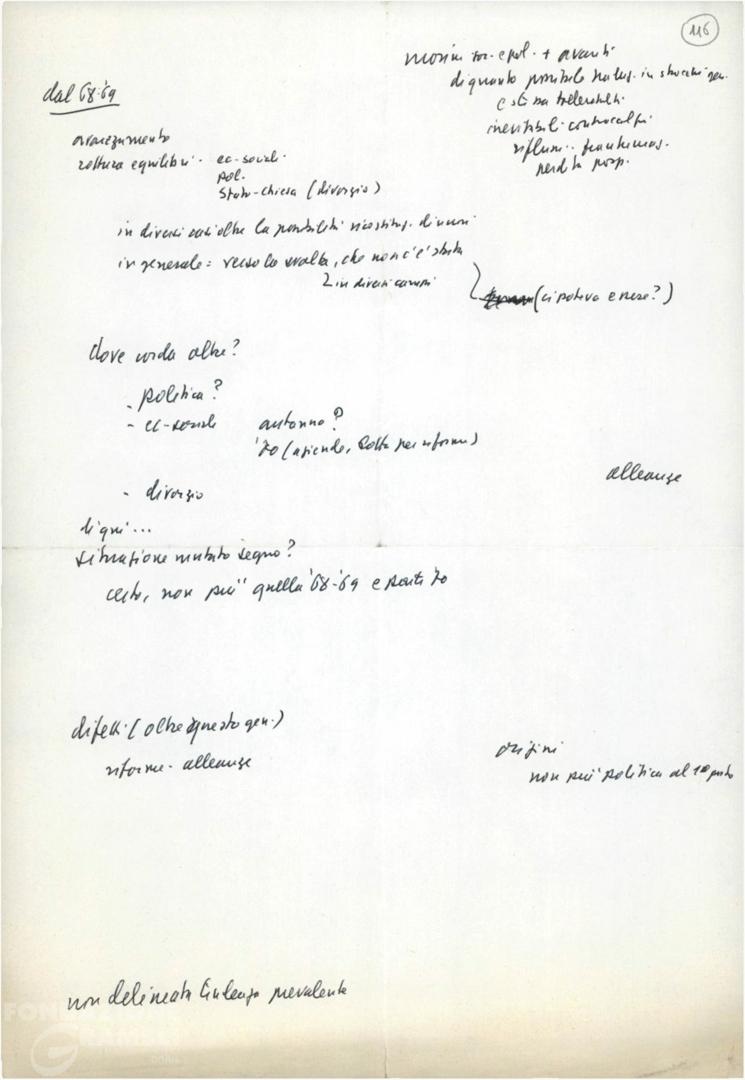 116
dal '68-'69
movim. soc. e pol. + avanti
di quanto possibile in sbocchi gen.
e di sa tollerabili
inevitabili contraccolpi
riflussi - frantumaz.
perdita prosp.
avanzamento
rottura equilibri - ec-sociali
pol.
Stato-chiesa (divorzio)
in diversi casi oltre la possibilità
in generale = verso la svolta, che non c'è stata
in diversi campi
(ci poteva essere?)
dove oltre?
- politica?
- ec-sociale autunno?
'70 (aziende, lotta per riforme)
alleanze
- divorzio
di qui...
situazione mutato segno?
certo, non più quella '68-'69 e '70
difetti (oltre questo gen.)
riforme - alleanze
origini
non più politica al 1° posto
non delineata tendenza prevalente
FONDAZIONE
GRAMSCI